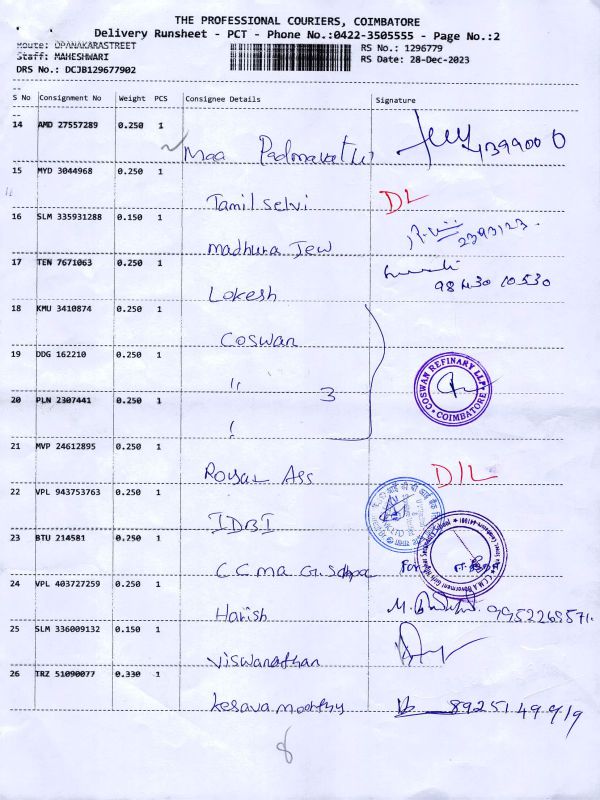 THE PROFESSIONAL COURIERS, COIMBATORE
Delivery Runsheet - PCT - Phone No.:0422-3505555 - Page No.:2
Route: OPANAKARASTREET
RS No.: 1296779
Staff: MAHESHWARI
RS Date: 28-Dec-2023
DRS No.: DCJB129677902
S No Consignment No Weight PCS Consignee Details Signature
14 AMD 27557289 0.250 1
Maa Padmavathi
15 MYD 3044968 0.250 1
Tamil Selvi DL
16 SLM 335931288 0.150 1
madhura Jew 2393123
17 TEN 7671063 0.250 1
Lokesh 98430 10530
18 KMU 3410874 0.250 1
Coswan
19 DDG 162210 0.250 1
" 3
COSWAN REFINARY LLP
COIMBATORE
20 PLN 2307441 0.250 1
21 MVP 24612895 0.250 1
Royal Ass D/L
22 VPL 943753763 0.250 1
IDBI
23 BTU 214581 0.250 1
C.C.ma G.S For
24 VPL 403727259 0.250 1
Harish 9952265571.
25 SLM 336009132 0.150 1
Viswanathan
26 TRZ 51090077 0.330 1
kesava moorthy 8925149919
8